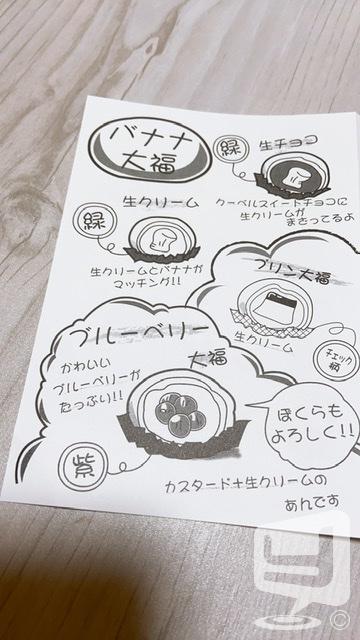 バナナ
大福
緑
生チョコ
クーベルスイートチョコに
生クリームが
まざってるよ
緑
生クリーム
生クリームとバナナが
マッチング!!
プリン大福
生クリーム
チェック
柄
ブルーベリー
大福
かわいい
ブルーベリーが
たっぷり!!
紫
ぼくらも
よろしく!!
カスタード+生クリームの
あんです
©